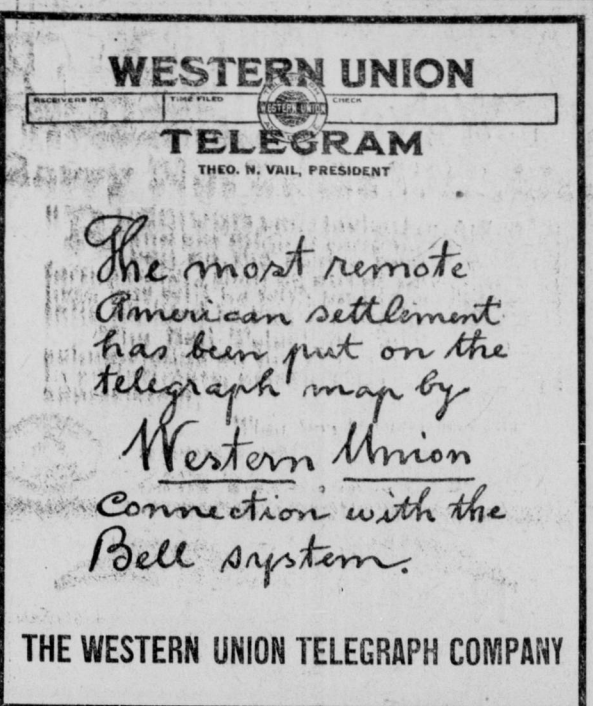 WESTERN UNION
RECEIVERS NO. TIME FILED CHECK
WESTERN UNION
TELEGRAM
THEO. N. VAIL, PRESIDENT
The most remote
American settlement
has been put on the
telegraph map by
Western Union
Connection with the
Bell system.
THE WESTERN UNION TELEGRAPH COMPANY